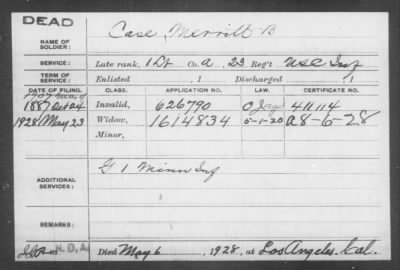 DEAD
NAME OF SOLDIER: Case, Merritt B
SERVICE: Late rank, 1 Lt Co. A, 23 Reg't U.S.C. Inf
TERM OF SERVICE: Enlisted , 1 Discharged , 1
DATE OF FILING. CLASS. APPLICATION NO. LAW. CERTIFICATE NO.
1887 Oct 24 Invalid, 626790 411114
1928 May 23 Widow, 1614834 5-1-20 A 8-6-28
Minor,
ADDITIONAL SERVICES: G 1 Minn Inf
REMARKS:
N.D.A. Died May 6, 1928, at Los Angeles, Cal.